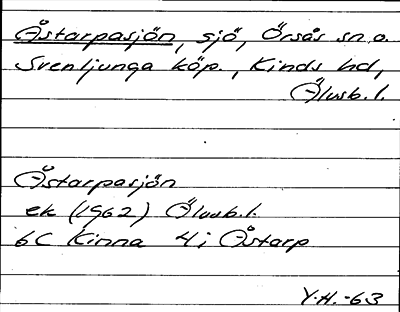 Åstarpasjön, sjö, Örsås sn o.
Svenljunga köp., Kinds hd,
Älvsb. l.
Åstarpasjön
ek (1962) Älvsb. l.
6C Kinna 4i Åstarp
Y.H.-63